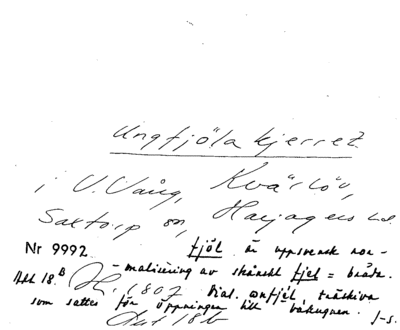 Ungfjöla kjerret
i V. Vång, Kvärlöv,
Saxtorp sn, Harjagers hd.
Nr 9992. fjöl är uppsvensk nor-
Akt 18B H. 1807 -malisering av skånskt fjel = bräda.
Dial. onfjel, träskiva
som sattes för öppningen till bakugnen. J-s.
Akt 18b